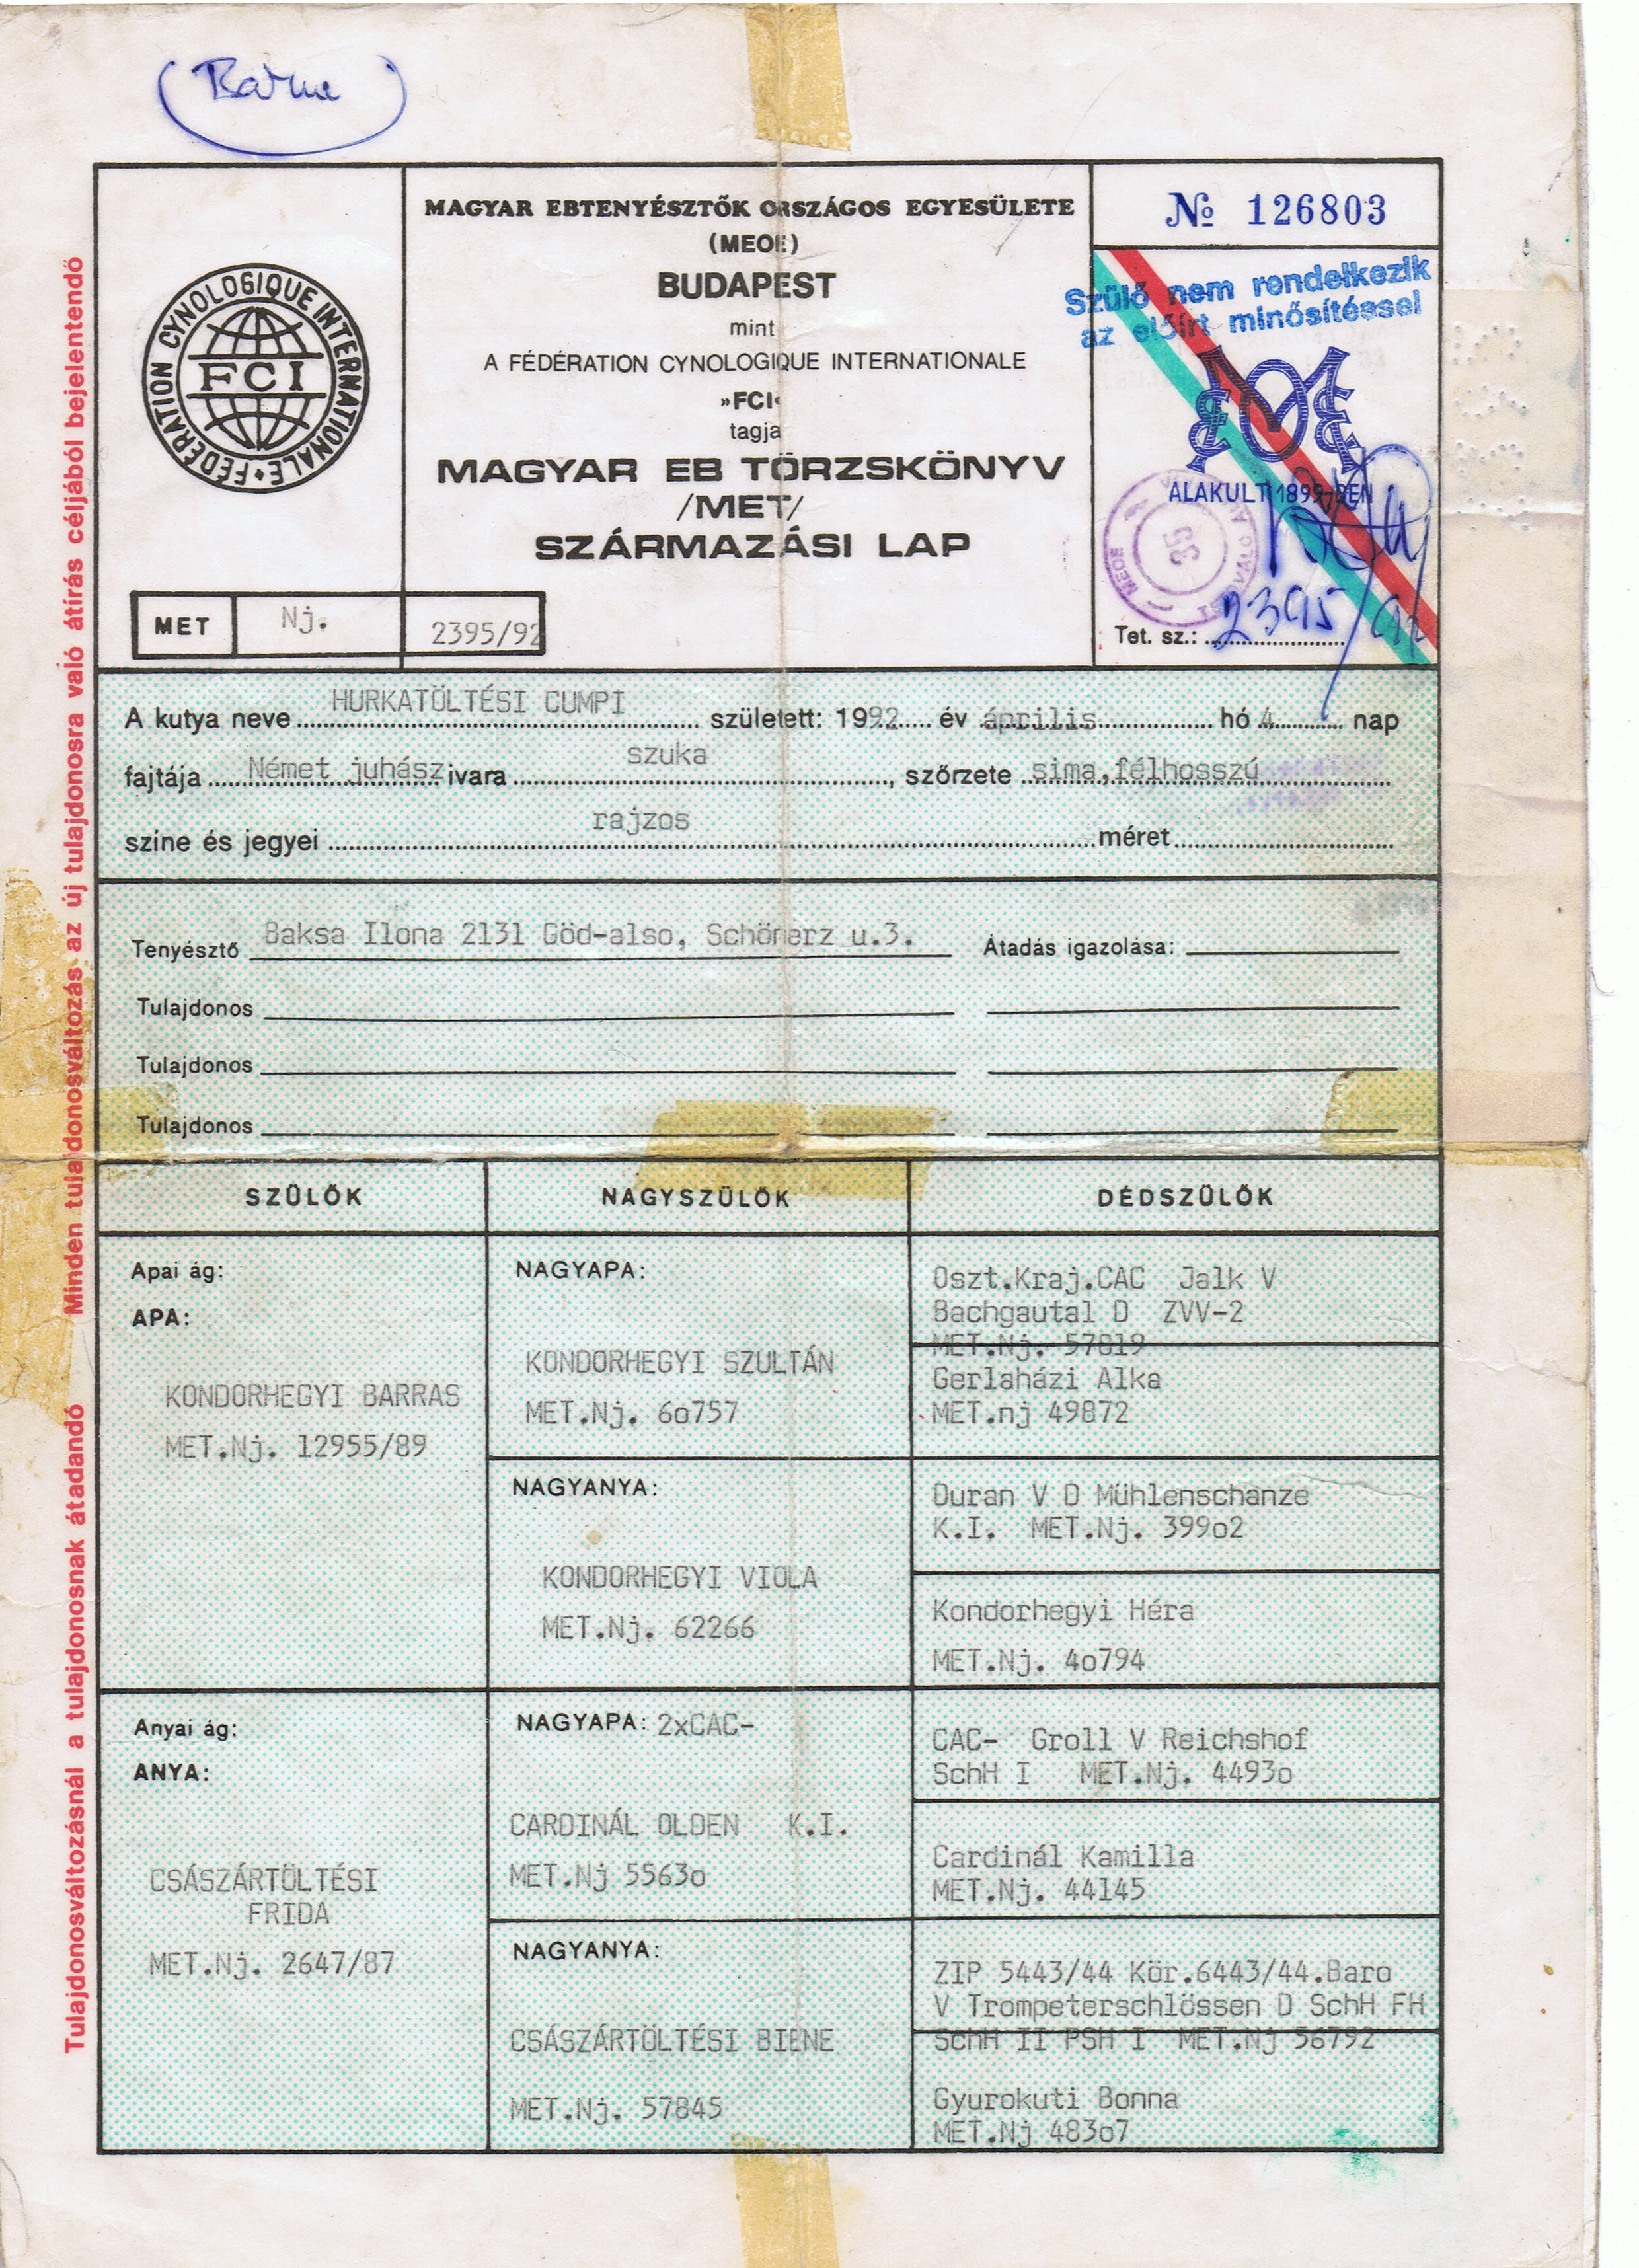 MAGYAR EBTENYÉSZTŐK ORSZÁGOS EGYESÜLETE
(MEOE)
BUDAPEST
mint
A FÉDÉRATION CYNOLOGIQUE INTERNATIONALE
»FCI«
tagja
MAGYAR EB TÖRZSKÖNYV
/MET/
SZÁRMAZÁSI LAP
FÉDÉRATION CYNOLOGIQUE INTERNATIONALE
FCI
№ 126803
Szülő nem rendelkezik
az előírt minősítéssel
ALAKULT 1899-BEN
MEOE
35
Tet. sz.: 2395/92
MET Nj. 2395/92
A kutya neve HURKATÖLTÉSI CUMPI született: 1992 év április hó 4 nap
fajtája Német juhász ivara szuka, szőrzete sima,félhosszú
színe és jegyei rajzos méret
Tenyésztő Baksa Ilona 2131 Göd-also, Schönerz u.3. Átadás igazolása:
Tulajdonos
Tulajdonos
Tulajdonos
SZÜLŐK NAGYSZÜLŐK DÉDSZÜLŐK
Apai ág:
APA:
KONDORHEGYI BARRAS
MET.Nj. 12955/89
NAGYAPA:
KONDORHEGYI SZULTÁN
MET.Nj. 6o757
Oszt.Kraj.CAC Jalk V
Bachgautal D ZVV-2
MET.Nj. 57819
Gerlaházi Alka
MET.nj 49872
NAGYANYA:
KONDORHEGYI VIOLA
MET.Nj. 62266
Duran V D Mühlenschanze
K.I. MET.Nj. 399o2
Kondorhegyi Héra
MET.Nj. 4o794
Anyai ág:
ANYA:
CSÁSZÁRTÖLTÉSI
FRIDA
MET.Nj. 2647/87
NAGYAPA: 2xCAC-
CARDINÁL OLDEN K.I.
MET.Nj 5563o
CAC- Groll V Reichshof
SchH I MET.Nj. 4493o
Cardinál Kamilla
MET.Nj. 44145
NAGYANYA:
CSÁSZÁRTÖLTÉSI BIENE
MET.Nj. 57845
ZIP 5443/44 Kör.6443/44.Baro
V Trompeterschlössen D SchH FH
SchH II PSH I MET.Nj 56792
Gyurokuti Bonna
MET.Nj 483o7
Minden tulajdonosváltozás az új tulajdonosra való átírás céljából bejelentendő
Tulajdonosváltozásnál a tulajdonosnak átadandó